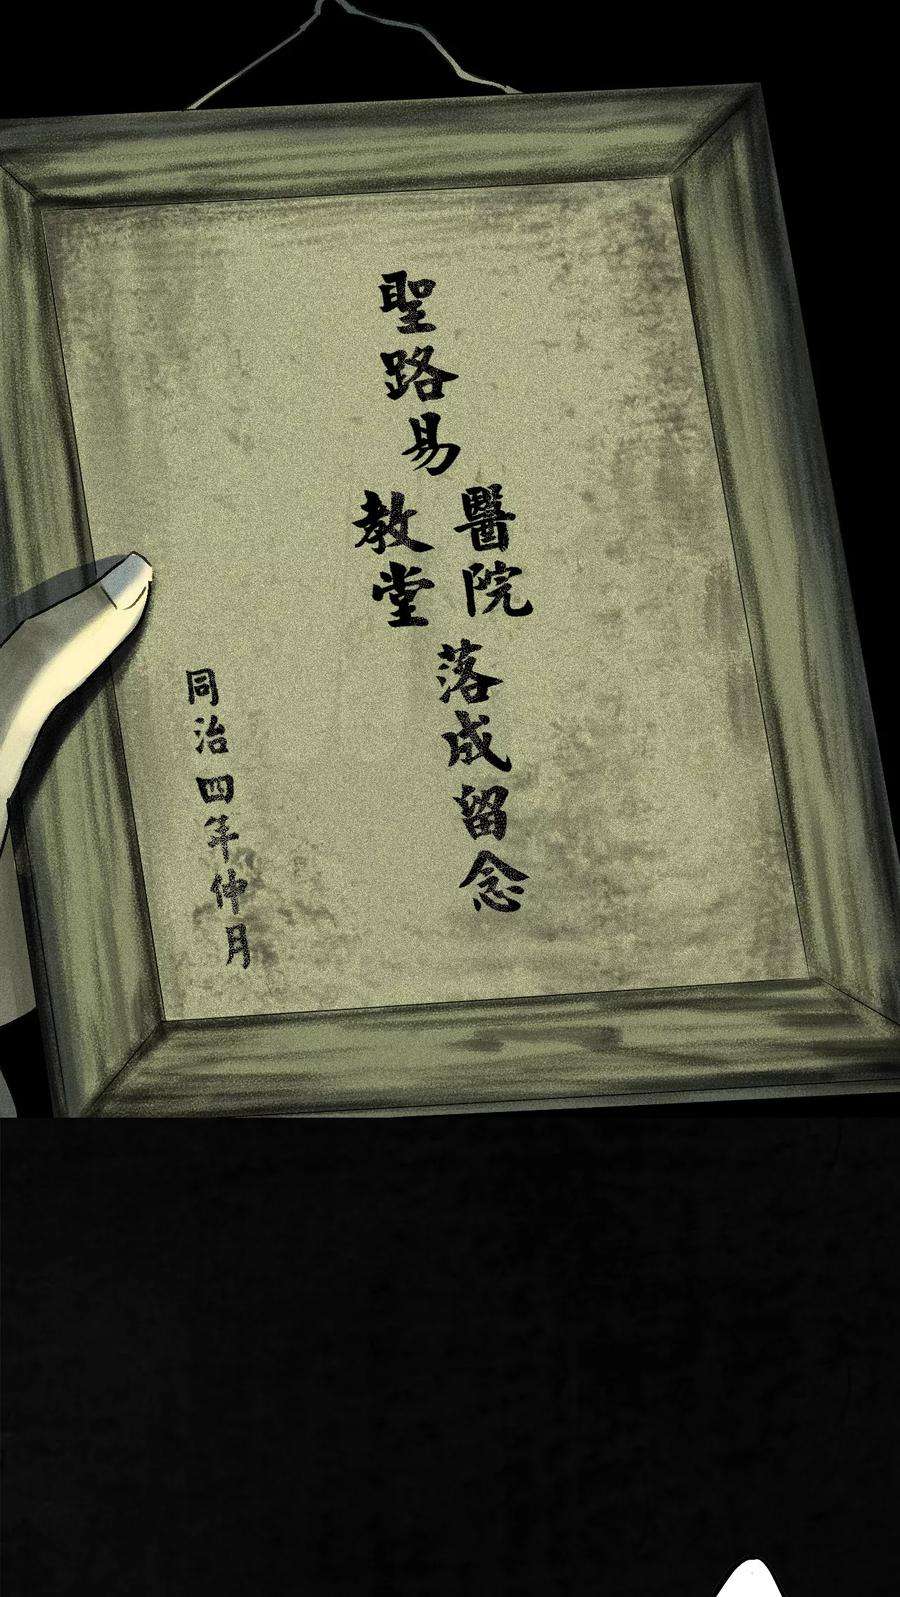 聖路易
醫院
教堂
落成留念
同治四年仲月